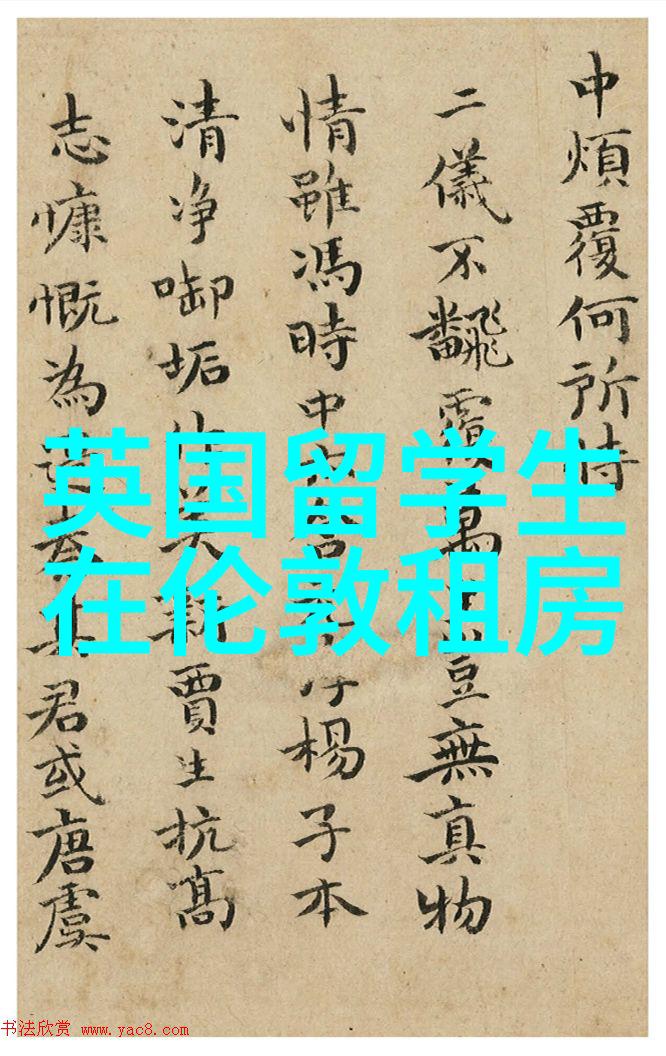 中煩覆何所恃
二儀不飜覆萬豈無真物
情雖馮時中楊子本
清净啣垢賈生抗高
志慷慨為君或唐虞
英国留学生
在伦敦租房
书法欣赏 www.yac8.com